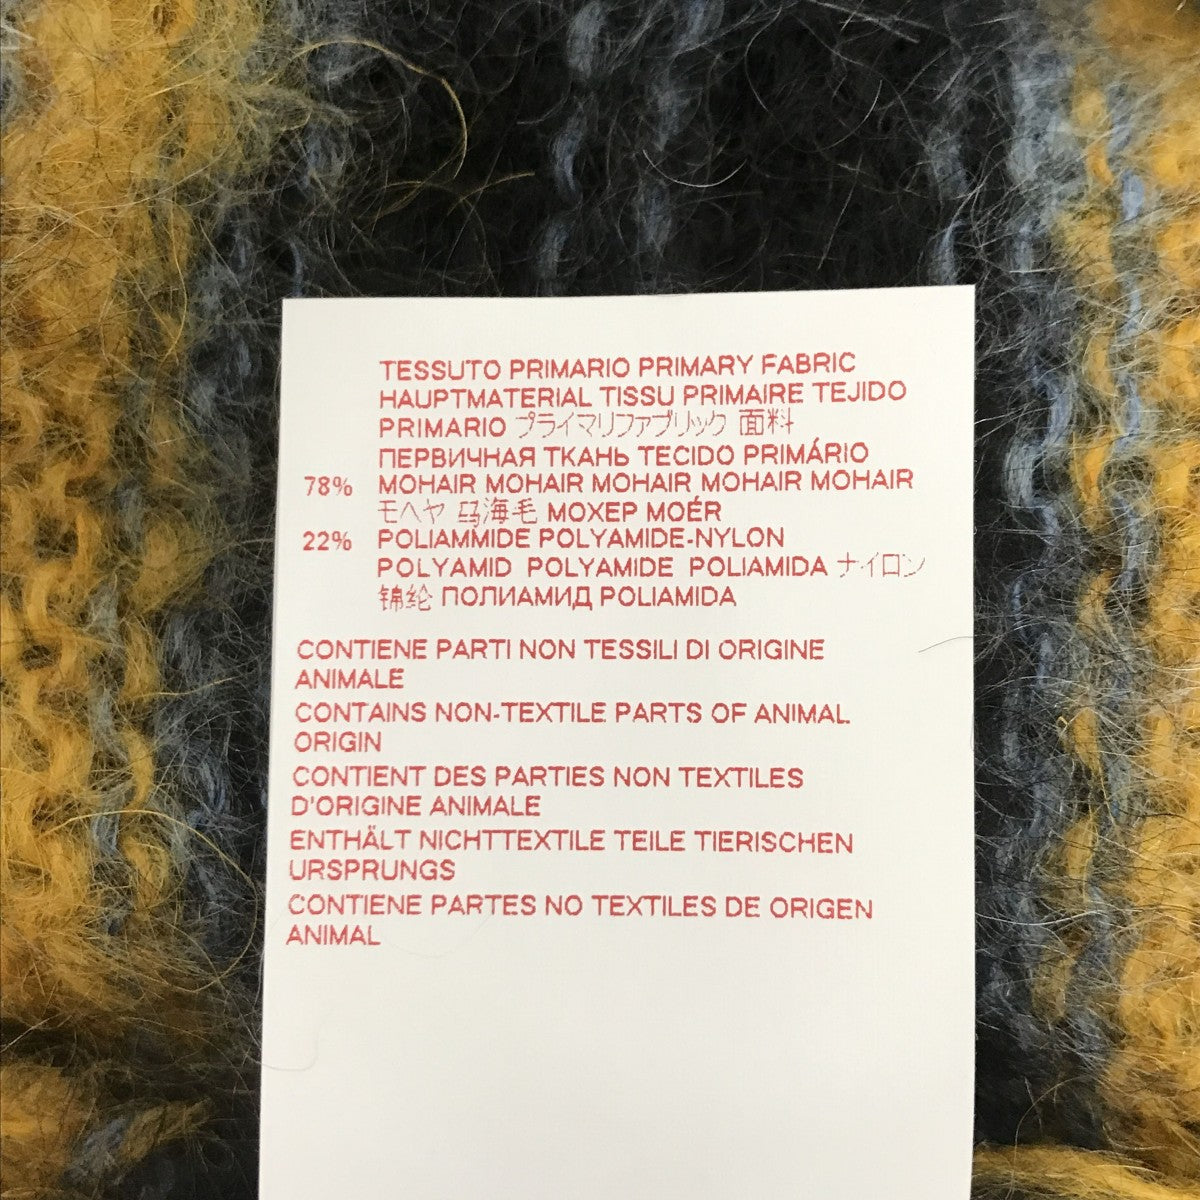 TESSUTO PRIMARIO PRIMARY FABRIC
HAUPTMATERIAL TISSU PRIMAIRE TEJIDO
PRIMARIO プライマリファブリック 面料
ПЕРВИЧНАЯ ТКАНЬ TECIDO PRIMÁRIO
78% MOHAIR MOHAIR MOHAIR MOHAIR MOHAIR
モヘヤ 马海毛 МОХЕР MOÉR
22% POLIAMMIDE POLYAMIDE-NYLON
POLYAMID POLYAMIDE POLIAMIDA ナイロン
锦纶 ПОЛИАМИД POLIAMIDA
CONTIENE PARTI NON TESSILI DI ORIGINE
ANIMALE
CONTAINS NON-TEXTILE PARTS OF ANIMAL
ORIGIN
CONTIENT DES PARTIES NON TEXTILES
D'ORIGINE ANIMALE
ENTHÄLT NICHTTEXTILE TEILE TIERISCHEN
URSPRUNGS
CONTIENE PARTES NO TEXTILES DE ORIGEN
ANIMAL